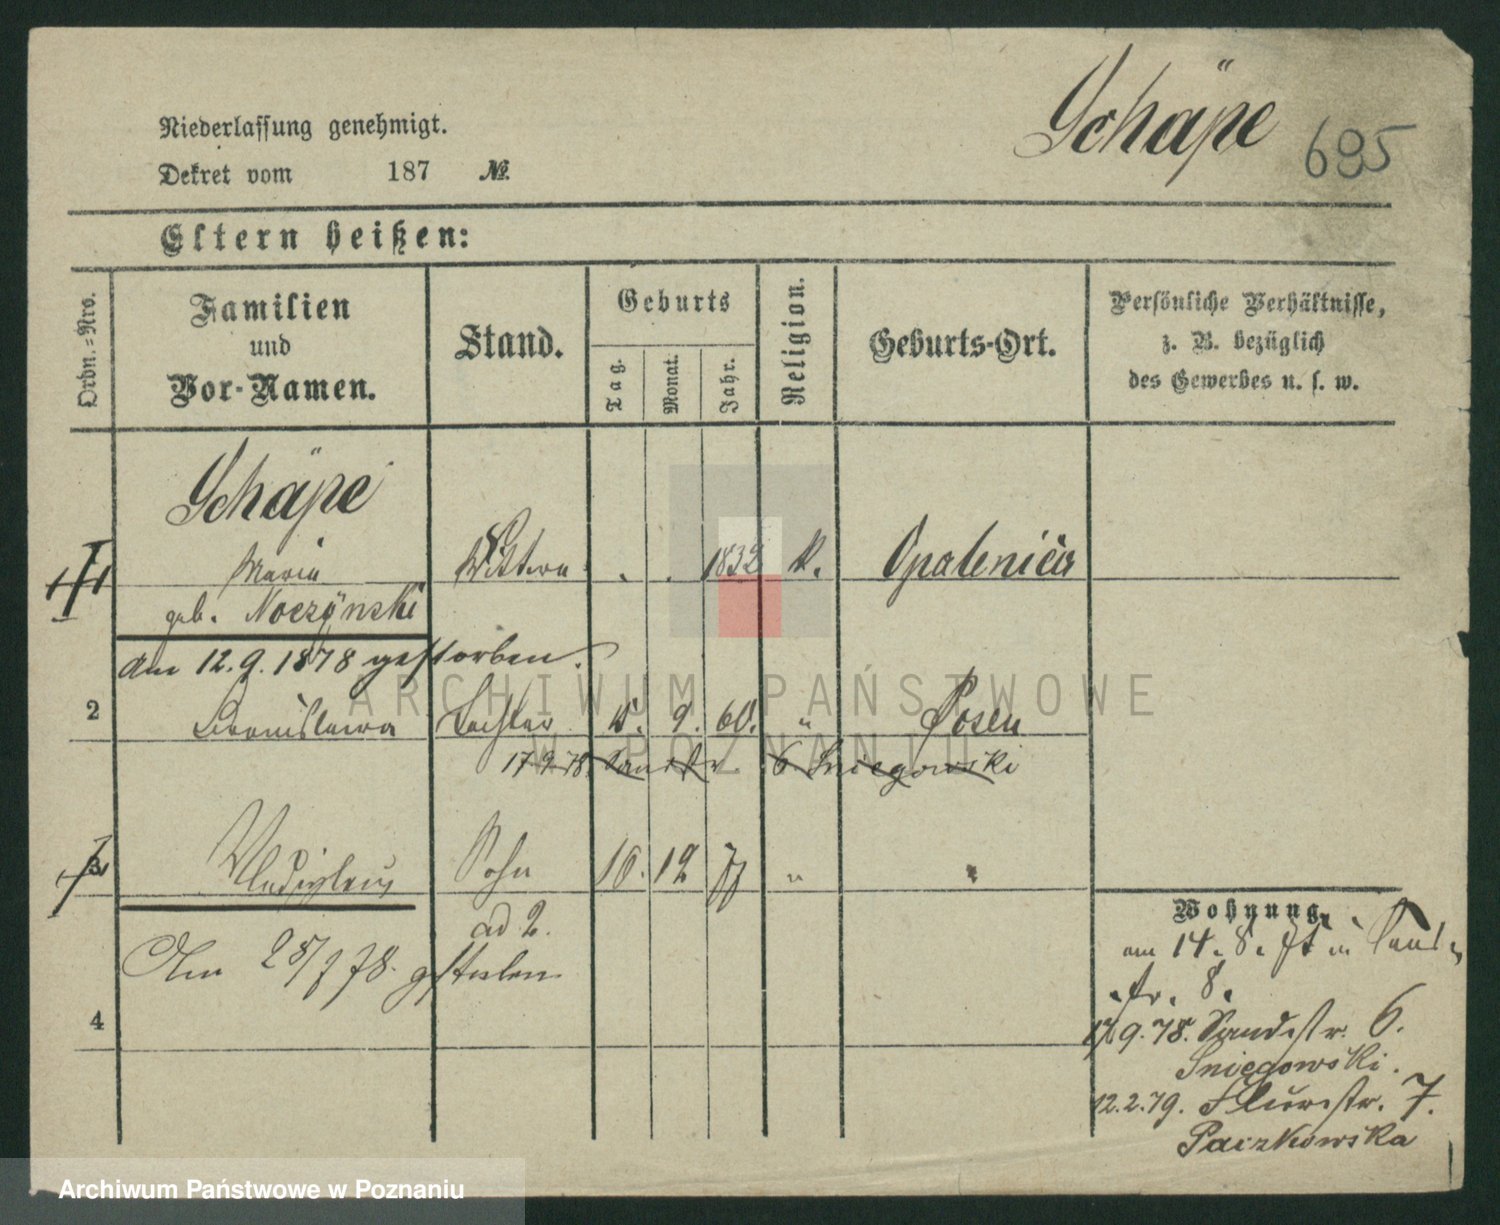 Schäpe 695
Niederlassung genehmigt.
Dekret vom 187 №.
Eltern heißen:
Ordn.=Nro.
Familien
und
Vor-Namen.
Stand.
Geburts
Tag.
Monat.
Jahr.
Religion.
Geburts-Ort.
Persönliche Verhältnisse,
z. B. bezüglich
des Gewerbes u. s. w.
Schäpe
Maria Wittwe . . 1832 k. Opalenica
geb. Noczynski
am 12.9.1878 gestorben.
2 Bronislawa Tochter 9. 60. " Posen
17.9.78. Sandstr 6. Sniegowski
3 Wladislaus Sohn 10. 12 77 " "
ad 2.
Am 28/ 78. gestorben
4
Wohnung.
am 14. 8. Sand
str. 8.
17.9.78. Sandstr. 6.
Sniegowski.
12.2.79. Flurstr. 7.
Paczkowska
ARCHIWUM PAŃSTWOWE
W POZNANIU
Archiwum Państwowe w Poznaniu